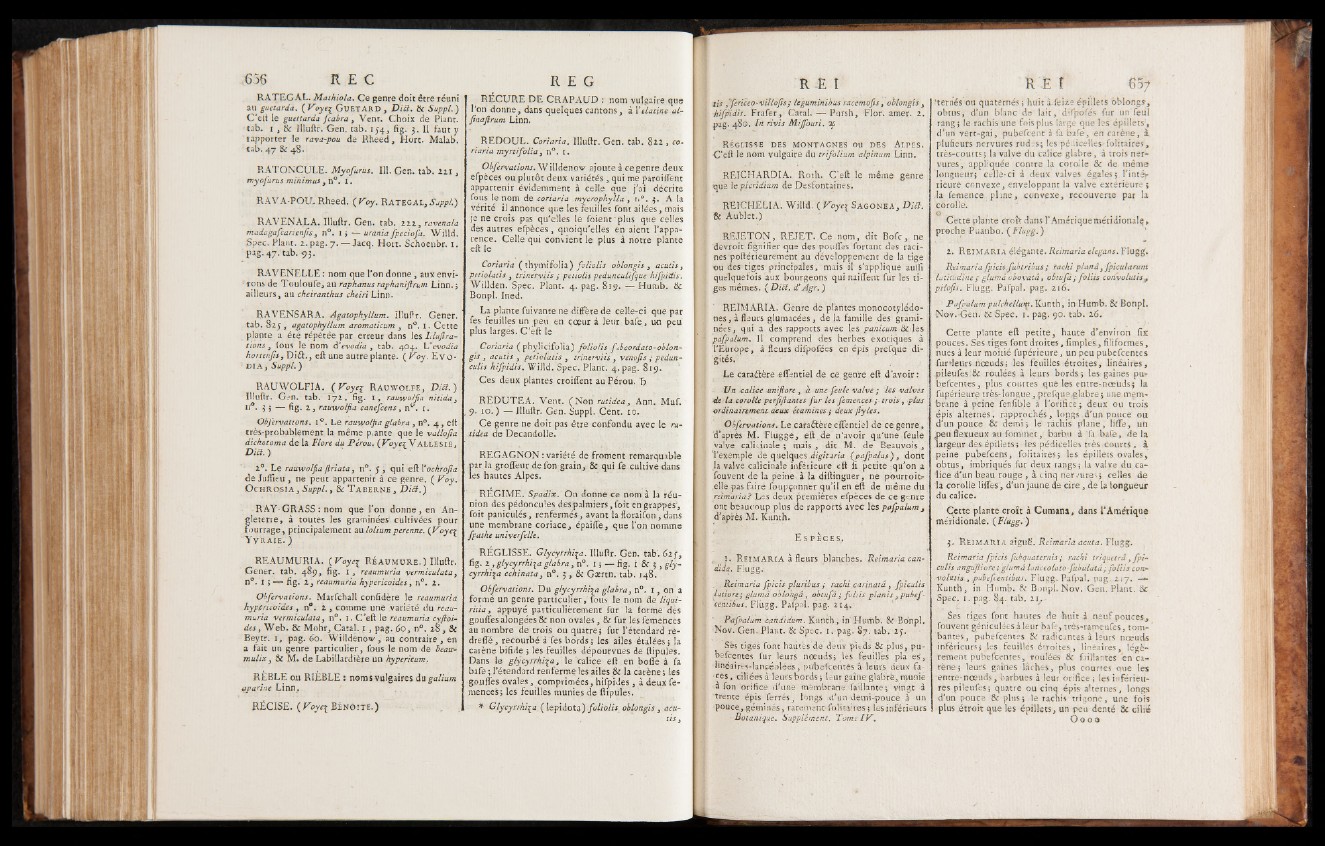 656 R E C
RATEGAL. Mathiola. Ce genre doit être réuni
au guetarda. (Voyez GUETARD, Dict. & Suppl.)
C'est le guettarda scabra, Vent. Choix de Plant.
tab. 1, & Illustr. Gen. tab. 154, fig. 3. Il faut y
rapporter le rava-pou de Rheed, Hort. Malab.
tab. 47 & 48.
RATONCULE. Myosurus. Ill. Gen. tab. 221,
myosurus minimus, n°. 1.
RAVA-POU. Rheed. (Voy. RATEGAL, Suppl.)
RAVENALA. Illustr. Gen. tab. 222, ravenala
madagascariensis, n°. 1; — urania speciosa. Willd.
Spec. Plant. 2. pag. 7. — Jacq. Hort. Schoenbr. 1.
pag. 47. tab. 93.
RAVENELLE : nom que l'on donne, aux envi-
rons de Toulouse, au raphanus raphanistrum Linn.;
ailleurs, au cheiranthus cheiri Linn.
RAVENSARA. Agatophyllum. Illustr. Gener.
tab. 825, agatophyllum aromaticum, n°. 1. Cette
plante a été répétée par erreur dans les Illustra-
tions, sous le nom d'evodia, tab. 404. L'evodia
hortensis, Dict., est une autre plante. (Voy. EVO-
DIA, Suppl.)
RAUWOLFIA. (Voyez RAUWOLFE, Dict.)
Illustr. Gen. tab. 172, fig. 1, rauwolfia nitida,
n°. 33 — fig. 2, rauwolfia canescens, n°. 1.
Observations. 1°. Le rauwolfia glabra, n°. 4, est
très-probablement la même plante que le vallesia
dichotoma de la Flore du Pérou. (Voyez VALLESIE,
Dict.)
2°. Le rauwolfia striata, n°. 5, qui est l'ochrosia
de Jussieu, ne peut appartenir à ce genre. (Voy.
OCHROSIA, Suppl., & TABERNE, Dict.)
RAY-GRASS : nom que l'on donne, en An-
gleterre, à toutes les graminées cultivées pour
fourrage, principalement au lolium perenne. (Voyez
YVRAIE.)
REAUMURIA. (Voyez RÉAUMURE.) Illustr.
Gener. tab. 489, fig. 1, reaumuria vermiculata,
n°. 1; — fig. 2, reaumuria hypericoides, n°. 2.
Observations. Marschall considère le reaumuria
hypericoides, n°. 2, comme une variété du reau-
muria vermiculata, n°. 1. C'est le reaumuria cystoi-
des, Web. & Mohr, Catal. 1, pag. 60, n°. 28, &
Beytr. 1, pag. 60. Willdenow, au contraire, en
a fait un genre particulier, sous le nom de beau-
mulix, & M. de Labillardière un hypericum.
RÈBLE ou RIÈBLE : noms vulgaires du galium
aparine Linn.
RÉCISE. (Voyez BENOITE.)
R E G
RÉCURE DE CRAPAUD : nom vulgaire que
l'on donne, dans quelques cantons, à l'elatine al-
sinastrum Linn.
REDOUL. Coriaria. Illustr. Gen. tab. 822, co-
riaria myrtifolia, n°. 1.
Observations. Willdenow ajoute à ce genre deux
espèces ou plutôt deux variétés, qui me paroissent
appartenir évidemment à celle que j'ai décrite
sous le nom de coriaria mycrophylla, n°. 3. A la
vérité il annonce que les feuilles sont ailées, mais
je ne crois pas qu'elles le soient plus que celles
des autres espèces, quoiqu'elles en aient l'appa-
rence. Celle qui convient le plus à notre plante
est le
Coriaria (thymifolia) foliolis oblongis, acutis,
petiolatis, trinerviis; petiolis pedunculisque hispidis.
Willden. Spec. Plant. 4. pag. 819. — Humb. &
Bonpl. Ined.
La plante suivante ne diffère de celle-ci que par
ses feuilles un peu en cœur à leur base, un peu
plus larges. C'est le
Coriaria (phylicifolia) foliolis subcordato-oblon-
gis, acutis, petiolatis, trinerviis, venosis; pedun-
culis hispidis. Willd. Spec. Plant. 4. pag. 819.
Ces deux plantes croissent au Pérou. ♄
REDUTEA. Vent. (Non rutidea, Ann. Mus.
9. 10.) — Illustr. Gen. Suppl. Cent. 10.
Ce genre ne doit pas être confondu avec le ru-
tidea de Decandolle.
REGAGNON : variété de froment remarquable
par la grosseur de son grain, & qui se cultive dans
les hautes Alpes.
RÉGIME. Spadix. On donne ce nom à la réu-
nion des pédoncules des palmiers, soit en grappes,
soit paniculés, renfermés, avant la floraison, dans
une membrane coriace, épaisse, que l'on nomme
spathe universelle.
RÉGLISSE. Glycyrrhiza. Illustr. Gen. tab. 625,
fig. 2, glycyrrhiza glabra, n°. 1; — fig. 1 & 3, gly-
cyrrhiza echinata, n°. 3, & Gærtn. tab. 148.
Observations. Du glycyrrhiza glabra, n°. 1, on a
formé un genre particulier, sous le nom de liqui-
ritia, appuyé particulièrement sur la forme des
gousses alongées & non ovales, & sur les semences
au nombre de trois ou quatre; sur l'étendard re-
dressé, recourbé à ses bords; les ailes étalées; la
carène bifide; les feuilles dépourvues de stipules.
Dans le glycyrrhiza, le calice est en bosse à sa
base; l'étendard renferme les ailes & la carène; les
gousses ovales, comprimées, hispides, à deux se-
mences; les feuilles munies de stipules.
* Glycyrrhiza (lepidota) foliolis oblongis, acu-
tis,
R E I
tis, sericeo-villosis; leguminibus racemosis, oblongis,
hispidis. Fraser, Catal. — Pursh, Flor. amer. 2.
pag. 480. In rivis Missouri. ♃
RÉGLISSE DES MONTAGNES OU DES ALPES.
C'est le nom vulgaire du trifolium alpinum Linn.
REICHARDIA. Roth. C'est le même genre
que le picridium de Desfontaines.
REICHELIA. Willd. (Voyez SAGONEA, Dict.
& Aublet.)
REJETON, REJET. Ce nom, dit Bosc, ne
devroit signifier que des pousses sortant des raci-
nes postérieurement au développement de la tige
ou des tiges principales, mais il s'applique aussi
quelquefois aux bourgeons qui naissent sur les ti-
ges mêmes. (Dict. d'Agr.)
REIMARIA. Genre de plantes monocotylédo-
nes, à fleurs glumacées, de la famille des grami-
nées, qui a des rapports avec les panicum & les
paspalum. Il comprend des herbes exotiques à
l'Europe, à fleurs disposées en épis presque di-
gités.
Le caractère essentiel de ce genre est d'avoir :
Un calice uniflore, à une seule valve; les valves
de la corolle persistantes sur les semences; trois, plus
ordinairement deux étamines; deux styles.
Observations. Le caractère essentiel de ce genre,
d'après M. Flugge, est de n'avoir qu'une seule
valve calicinale; mais, dit M. de Beauvois,
l'exemple de quelques digitaria (paspalus), dont
la valve calicinale inférieure est si petite qu'on a
souvent de la peine à la distinguer, ne pourroit-
elle pas faire soupçonner qu'il en est de même du
reimaria? Les deux premières espèces de ce genre
ont beaucoup plus de rapports avec les paspalum,
d'après M. Kunth.
ESPÈCES.
1. REIMARIA à fleurs blanches. Reimaria can-
dida. Flugg.
Reimaria spicis pluribus; rachi carinatâ, spiculis
latiore; glumâ oblongâ, obtusâ; foliis planis, pubes-
centibus. Flugg. Paspal. pag. 214.
Paspalum candidum. Kunth, in Humb. & Bonpl.
Nov. Gen. Plant. & Spec. 1. pag. 87. tab. 25.
Ses tiges sont hautes de deux pieds & plus, pu-
bescentes sur leurs nœuds; les feuilles planes,
linéaires-lancéolées, pubescentes à leurs deux fa-
ces, ciliées à leurs bords; leur gaine glabre, munie
à son orifice d'une membrane saillante; vingt à
trente épis serrés, longs d'un demi-pouce à un
pouce, géminés, rarement solitaires; les inférieurs
Botanique. Supplément. Tome IV.
R E I 657
ternés ou quaternés; huit à seize épillets oblongs,
obtus, d'un blanc de lait, disposés sur un seul
rang; le rachis une fois plus large que les épillets,
d'un vert-gai, pubescent à sa base, en carène, à
plusieurs nervures rudes; les pédicelles solitaires,
très-courts; la valve du calice glabre, à trois ner-
vures, appliquée contre la corolle & de même
longueur; celle-ci à deux valves égales; l'inté-
rieure convexe, enveloppant la valve extérieure;
la semence plane, convexe, recouverte par la
corolle.
Cette plante croît dans l'Amérique méridionale,
proche Puambo. (Flugg.)
2. REIMARIA élégante. Reimaria elegans. Flugg.
Reimaria spicis subtribus; rachi planâ, spicularum
latitudine; glumâ obovatâ, obtusâ; foliis convolutis,
pilosis. Flugg. Paspal. pag. 216.
Paspalum pulchellum. Kunth, in Humb. & Bonpl.
Nov. Gen. & Spec. 1. pag. 90. tab. 26.
Cette plante est petite, haute d'environ six
pouces. Ses tiges sont droites, simples, filiformes,
nues à leur moitié supérieure, un peu pubescentes
sur leurs nœuds; les feuilles étroites, linéaires,
pileuses & roulées à leurs bords; les gaines pu-
bescentes, plus courtes que les entre-nœuds; la
supérieure très-longue, presque glabre; une mem-
brane à peine sensible à l'orifice; deux ou trois
épis alternes, rapprochés, longs d'un pouce ou
d'un pouce & demi; le rachis plane, lisse, un
peu flexueux au sommet, barbu à sa base, de la
largeur des épillets; les pédicelles très-courts, à
peine pubescens, solitaires; les épillets ovales,
obtus, imbriqués sur deux rangs; la valve du ca-
lice d'un beau rouge, à cinq nervures; celles de
la corolle lisses, d'un jaune de cire, de la longueur
du calice.
Cette plante croît à Cumana, dans l'Amérique
méridionale. (Flugg.)
3. REIMARIA aiguë. Reimaria acuta. Flugg.
Reimaria spicis subquaternis; rachi triquetrâ, spi-
culis angustiore; glumâ lanceolato-subulatâ; foliis con-
volutis, pubescentibus. Flugg. Paspal. pag. 217. —
Kunth, in Humb. & Bonpl. Nov. Gen. Plant. &
Spec. 1. pag. 84. tab. 21.
Ses tiges sont hautes de huit à neuf pouces,
souvent géniculées à leur base, très-rameuses, tom-
bantes, pubescentes & radicantes à leurs nœuds
inférieurs; les feuilles étroites, linéaires, légè-
rement pubescentes, roulées & saillantes en ca-
rène; leurs gaines lâches, plus courtes que les
entre-nœuds, barbues à leur orifice; les inférieu-
res pileuses; quatre ou cinq épis alternes, longs
d'un pouce & plus; le rachis trigone, une fois
plus étroit que les épillets, un peu denté & cilié
Oooo